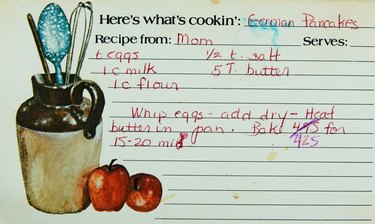 Here's what's cookin': German Pancakes
Recipe from: Mom Serves:
6 eggs ½ t. salt
1 c milk 5 T. butter
1 c flour
Whip eggs - add dry - Heat
butter in pan. Bake for
15-20 min 425